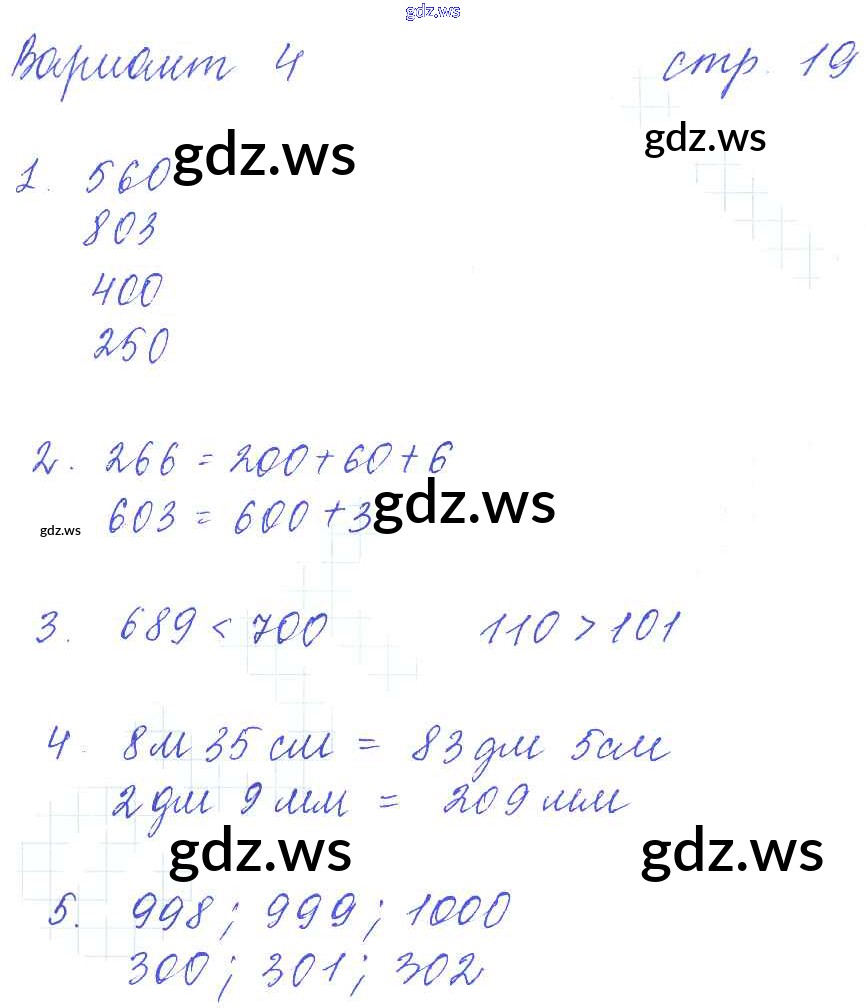 gdz.ws
Вариант 4 стр. 19
gdz.ws
1. 560 gdz.ws
803
400
250
2. 266 = 200 + 60 + 6
603 = 600 + 3 gdz.ws
gdz.ws
3. 689 < 700 110 > 101
4. 8м 35 см = 83 дм 5см
2 дм 9 мм = 209 мм
gdz.ws gdz.ws
5. 998; 999; 1000
300; 301; 302